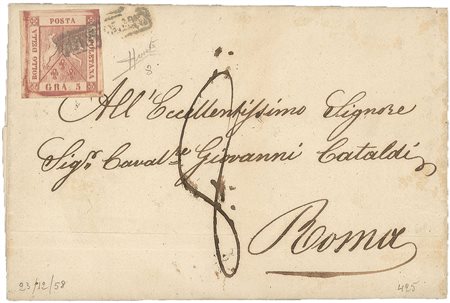 BOLLO DELLA
POSTA
NAPOLETANA
GRA 5
8
All'Eccellentissimo Signore
Sigr. Cavalre Giovanni Cataldi
Roma
23/12/58
425